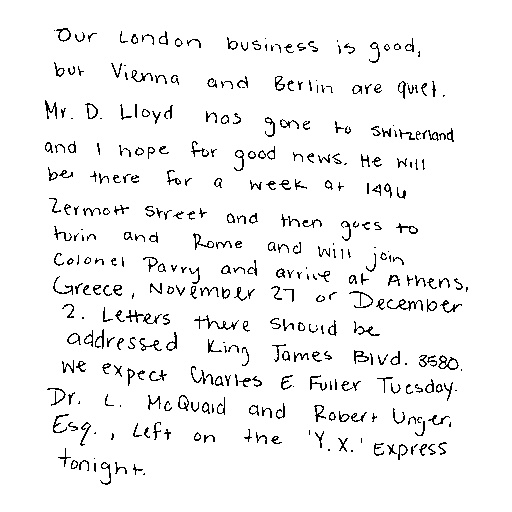 Our London business is good,
but Vienna and Berlin are quiet.
Mr. D. Lloyd has gone to Switzerland
and I hope for good news. He will
be there for a week at 1496
Zermott Street and then goes to
turin and Rome and will join
Colonel Parry and arrive at Athens,
Greece, November 27 or December
2. Letters there should be
addressed King James Blvd. 3580.
We expect Charles E Fuller Tuesday.
Dr. L. McQuaid and Robert Unger,
Esq., Left on the 'Y.X.' Express
tonight.